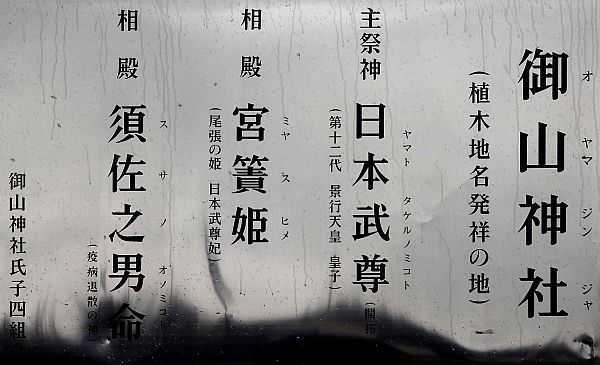 御山神社
オ ヤマ ジン ジャ
(植木地名発祥の地)
主祭神 日本武尊(開拓
ヤマト タケルノミコト
(第十二代 景行天皇 皇子)
相殿 宮簀姫
ミヤ ス ヒメ
(尾張の姫 日本武尊妃)
相殿 須佐之男命
ス サ ノ オノミコト
(疫病退散の神)
御山神社氏子四組